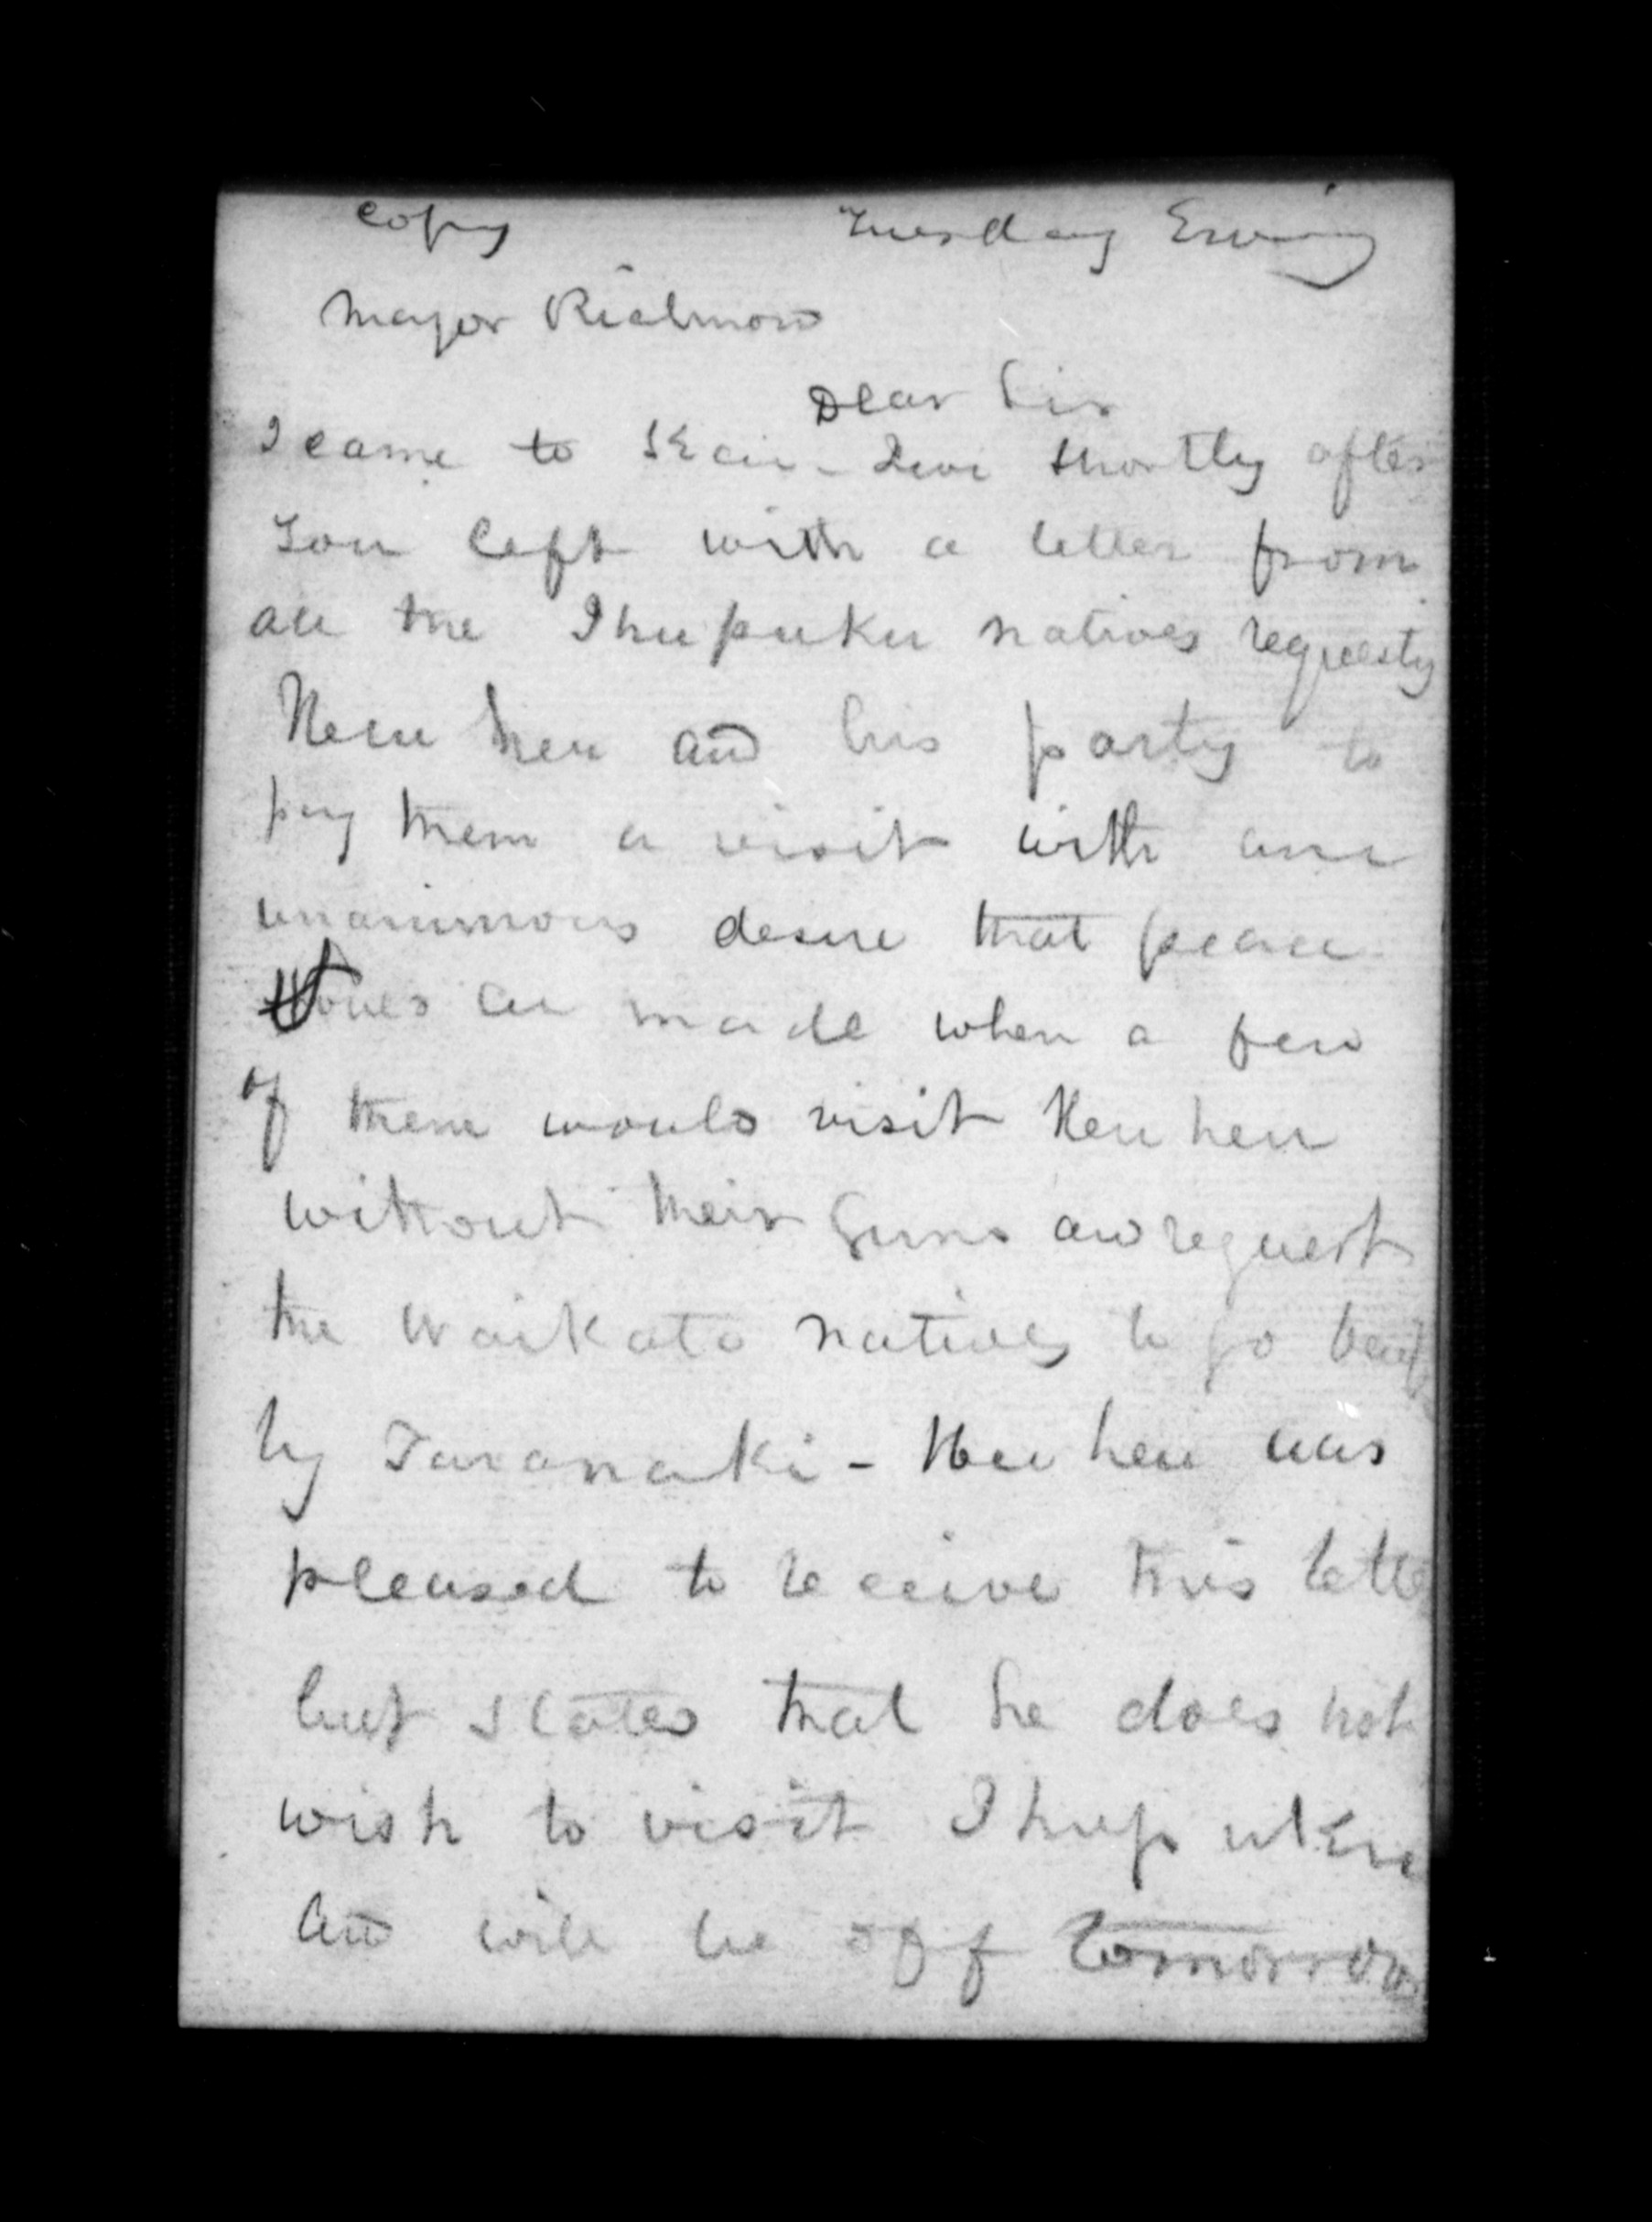 Copy Tuesday Evening
Major Richmond
Dear Sir
I came to Kai-Iwi shortly after
you left with a letter from
all the Ihupuku natives requesting
Heu heu and his party to
pay them a visit with an
unanimous desire that peace
be made when a few
of them would visit Heu heu
without their Guns and request
the Waikato natives to go back
by Taranaki - Heu heu was
pleased to receive this letter
but states that he does not
wish to visit Ihupuku
and will be off tomorrow